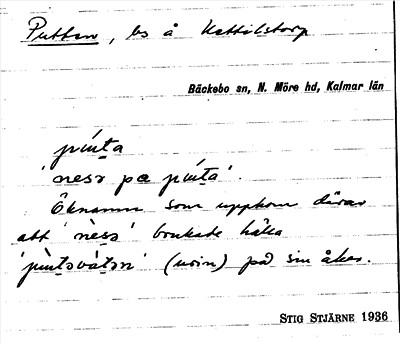 Putten, ls å Kettilstorp
Bäckebo sn, N. Möre hd, Kalmar län
pínta
'nesr pa pínta'.
Öknamn som uppkom därav
att 'nèss' brukade hälla
'pìntsvàtsn' (urin) på sin åker.
STIG STJÄRNE 1936